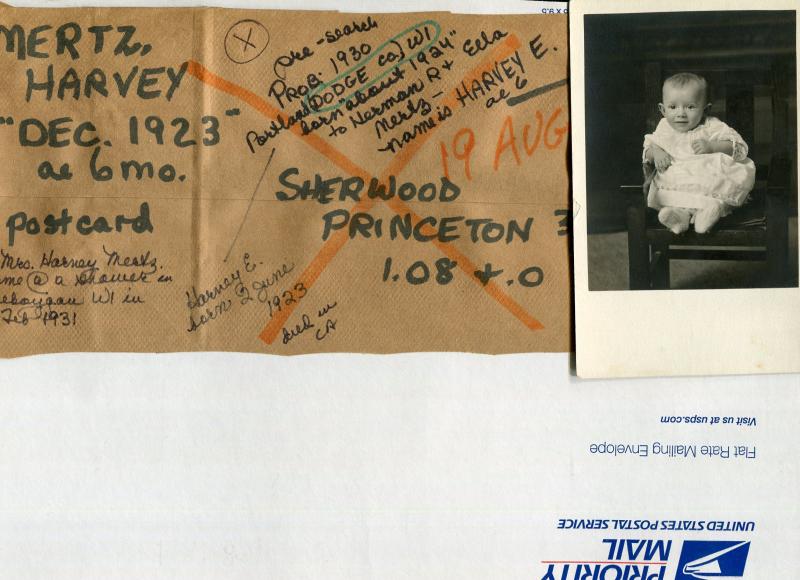 MERTZ,
HARVEY
"DEC. 1923"
ae 6 mo.
postcard
Mrs. Harvey Mertz.
me @ a shower in
eboygan WI in
Feb 1931
X
pre-search
PROB. 1930
Portland (DODGE co) WI
born "about 1924"
to Herman R + Ella
Mertz -
name is HARVEY E.
ae 6
19 AUG
SHERWOOD
PRINCETON 3
1.08 + .0
Harvey E.
born 2 June
1923
died in
CA
Visit us at usps.com
Flat Rate Mailing Envelope
UNITED STATES POSTAL SERVICE
PRIORITY
MAIL